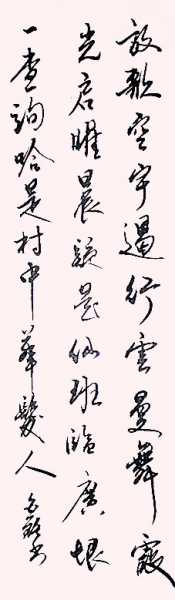 放歌空宇遏行云曼舞霞
光启曜晨疑是仙班临广垠
一查询哈是村中华发人